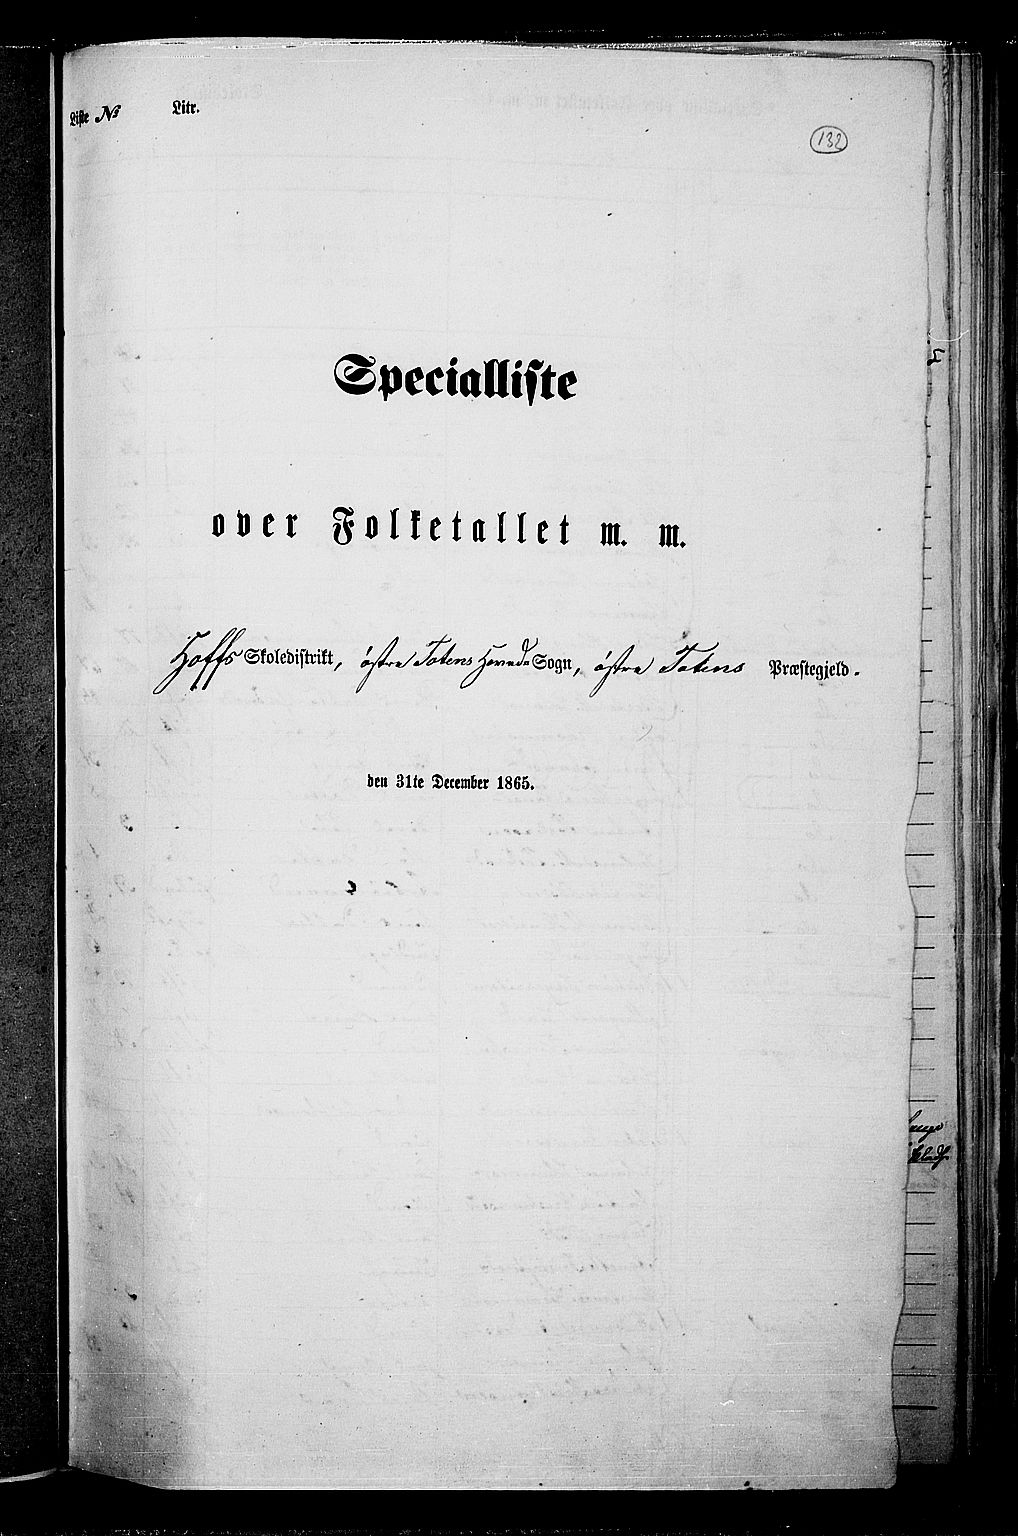 Liste No Litr.
132
Specialliste
over Folketallet m. m.
Hoffs Skoledistrikt, østre Totens Hoved Sogn, østre Totens Præstegjeld.
den 31te December 1865.